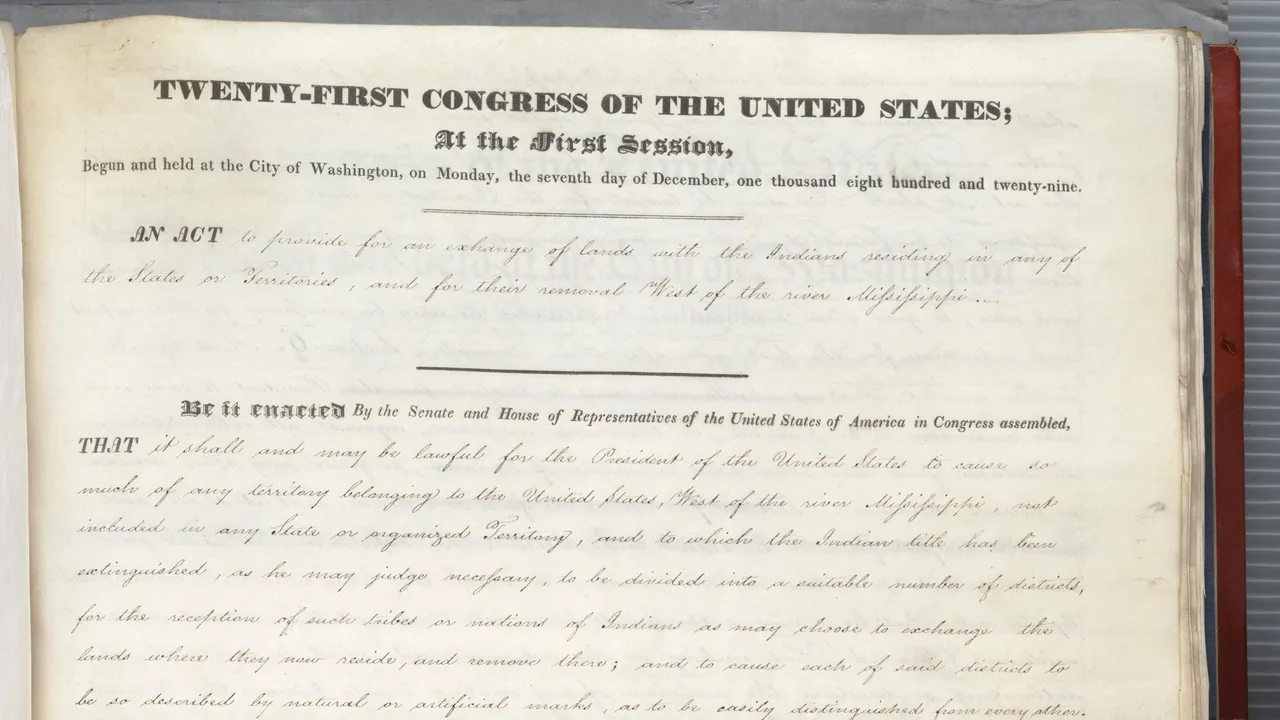 TWENTY-FIRST CONGRESS OF THE UNITED STATES;
At the First Session,
Begun and held at the City of Washington, on Monday, the seventh day of December, one thousand eight hundred and twenty-nine.
AN ACT to provide for an exchange of lands with the Indians residing in any of
the States or Territories, and for their removal West of the river Miſsiſsippi ...
Be it enacted By the Senate and House of Representatives of the United States of America in Congress assembled,
THAT it shall and may be lawful for the President of the United States to cause so
much of any territory belonging to the United States, West of the river Miſsiſsippi, not
included in any State or organized Territory, and to which the Indian title has been
extinguished, as he may judge neceſsary, to be divided into a suitable number of districts,
for the reception of such tribes or nations of Indians as may choose to exchange the
lands where they now reside, and remove there; and to cause each of said districts to
be so described by natural or artificial marks, as to be easily distinguished from every other.